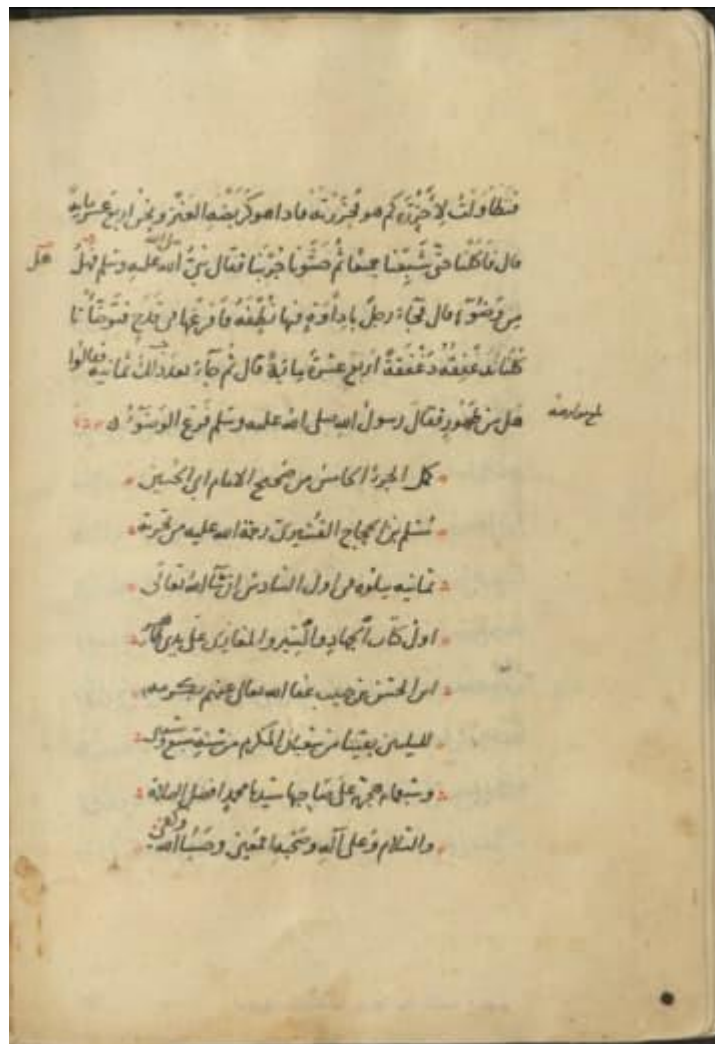 فتطاولت لاحزره كم هو فحزرته فاذا هو كربضة العنز ونحن اربع عشرة ماية
قال فاكلنا حتى شبعنا جميعا ثم حشونا جربنا فقال نبي الله صلى الله عليه وسلم فهل
هل
من وضوء قال فجاء رجل باداوة فيها نطفة فافرغها في قدح فتوضأنا
كلنا ندغفقه دغفقة اربع عشرة ماية قال ثم جاء بعد ذلك ثمانية فقالوا
هل من طهور فقال رسول الله صلى الله عليه وسلم فرغ الوضوء
كمل الجزء الخامس من صحيح الامام ابي الحسين
مسلم بن الحجاج القشيري رحمة الله عليه من تجزية
ثمانية يتلوه في اول السادس ان شاء الله تعالى
اول كتاب الجهاد والسير والمغازي على يدي
بن حبيب عفا الله تعالى عنهم بكرمه
لليلتين بقيتا من شعبان المكرم من سنة تسع
وسبعماية هجرية على صاحبها سيدنا محمد افضل الصلاة
والسلام وعلى آله وصحبه اجمعين وحسبنا الله وكفى